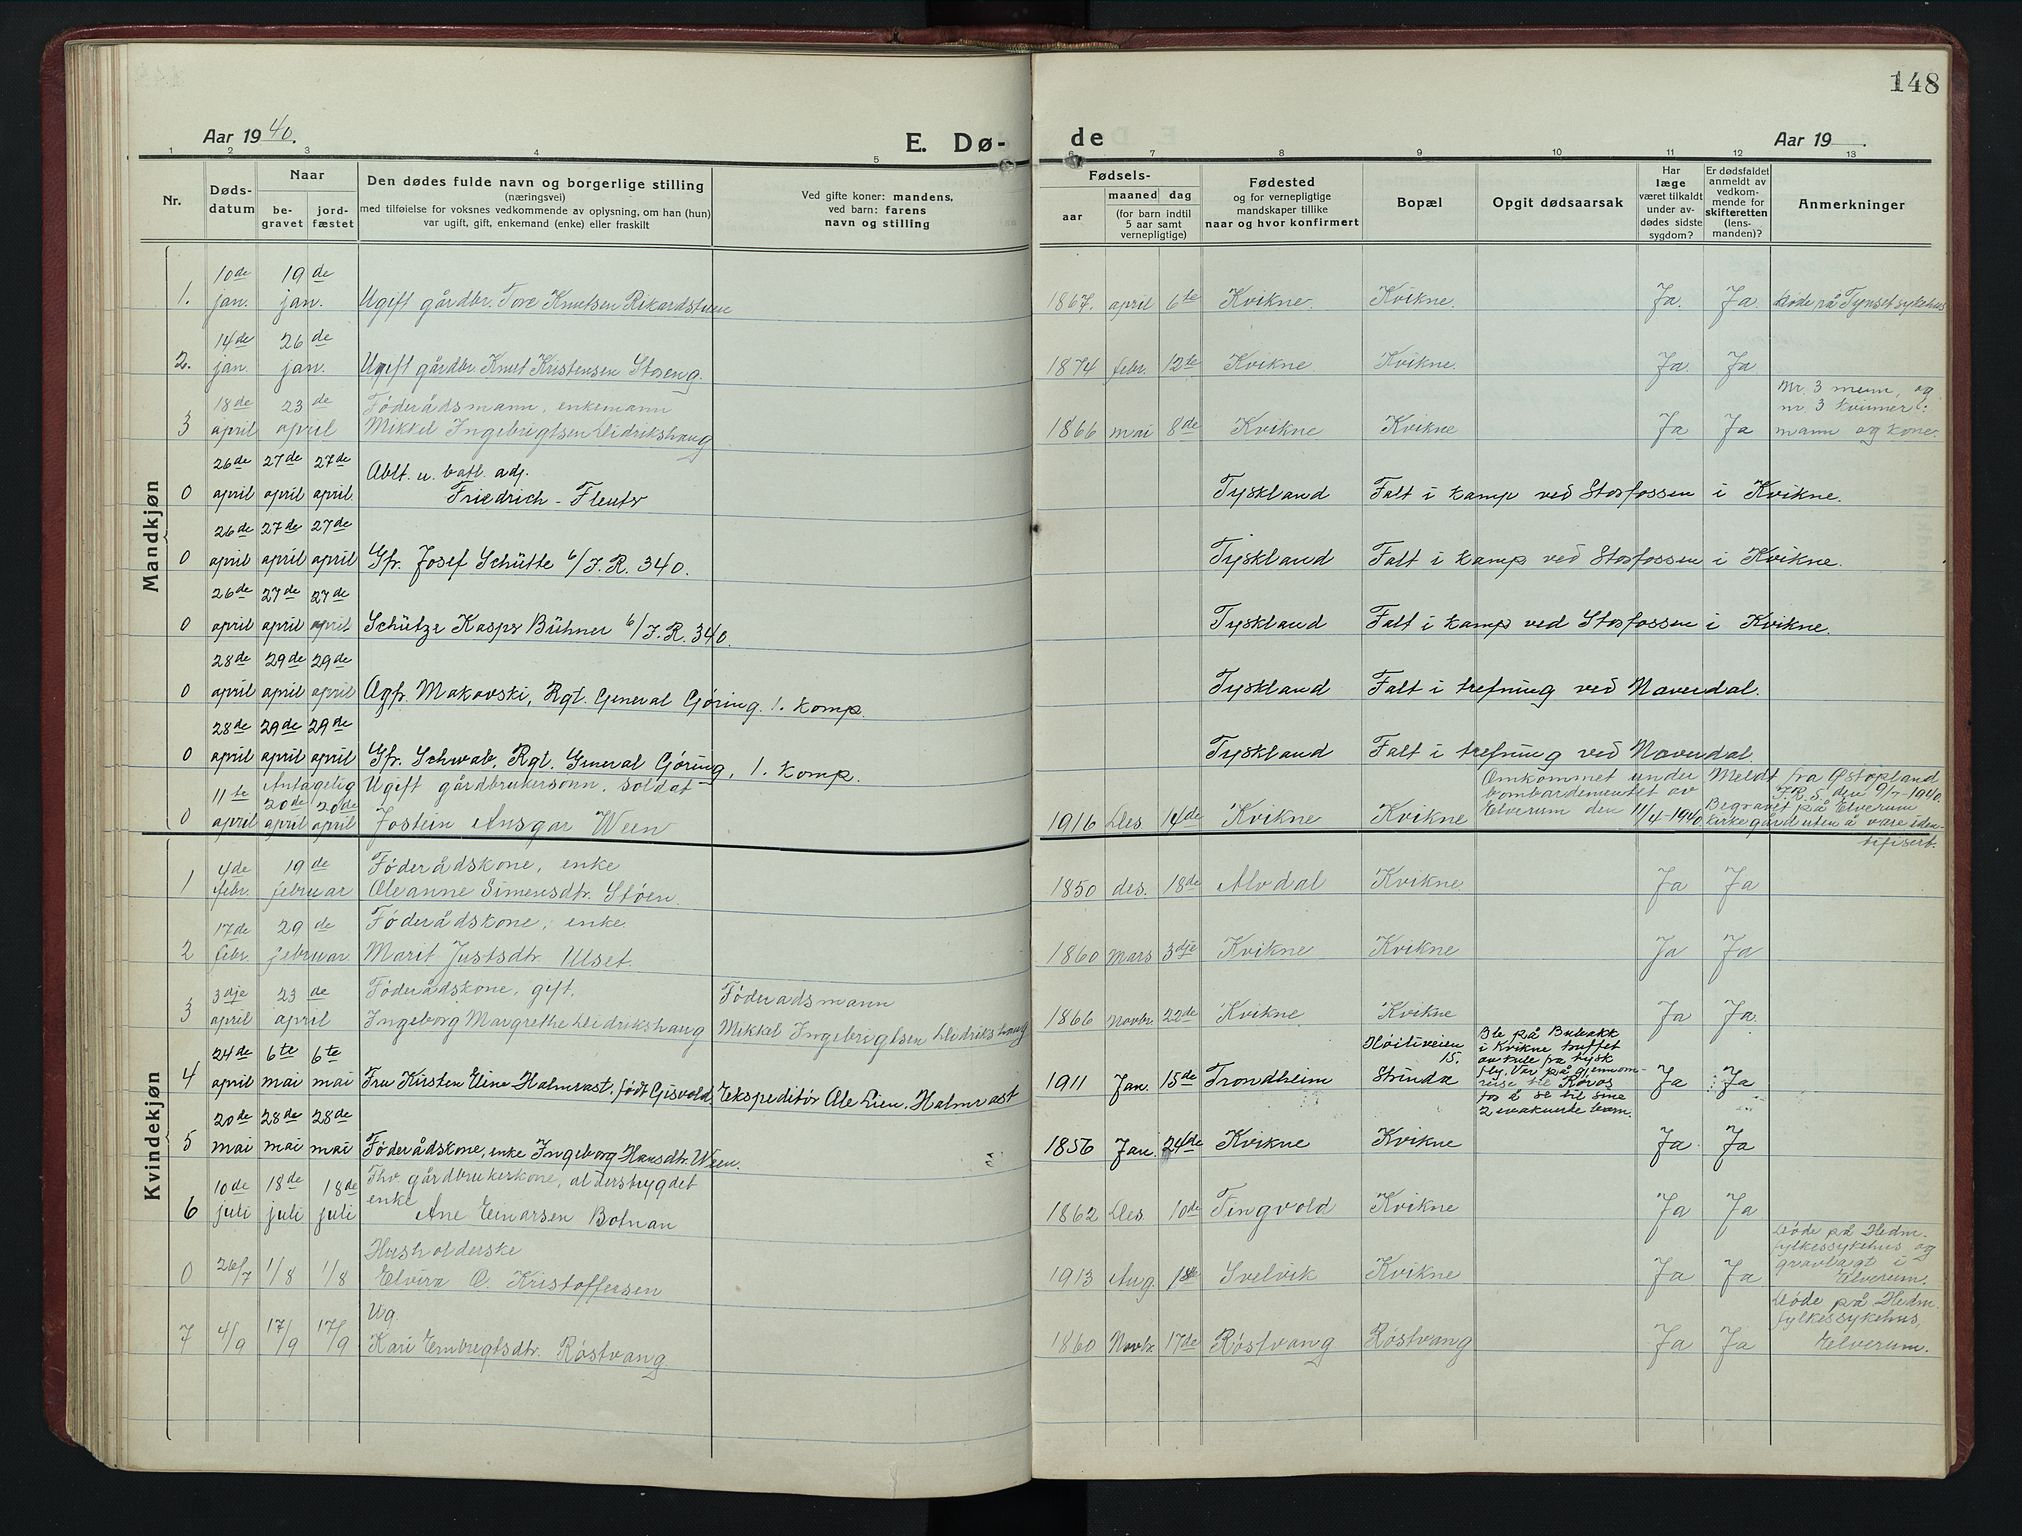 148
Aar 1940.
E. Dø-
de
Aar 19 .
1 2 3 4 5 6 7 8 9 10 11 12 13
Nr.
Døds-
datum
Naar
be-
gravet
jord-
fæstet
Den dødes fulde navn og borgerlige stilling
(næringsvei)
med tilføielse for voksnes vedkommende av oplysning, om han (hun)
var ugift, gift, enkemand (enke) eller fraskilt
Ved gifte koner: mandens,
ved barn: farens
navn og stilling
Fødsels-
aar
maaned
dag
(for barn indtil
5 aar samt
vernepligtige)
Fødested
og for vernepligtige
mandskaper tillike
naar og hvor konfirmert
Bopæl
Opgit dødsaarsak
Har
læge
været tilkaldt
under av-
dødes sidste
sygdom?
Er dødsfaldet
anmeldt av
vedkom-
mende for
skifteretten
(lens-
manden)?
Anmerkninger
Mandkjøn
10de 19 de
1. jan. jan. Ugift gårdbr. Tore Knutsen Rikardstuen 1867. april 6te Kvikne. Kvikne. Ja. Ja. Døde på Tynset sykehus
14de 26 de
2. jan. jan. Ugift gårdbr. Knut Kristensen Stoeng. 1874 febr. 12te Kvikne Kvikne. Ja. Ja
18de 23 de Føderådsmann, enkemann Nr. 3 menn, og
nr. 3 kvinner:
3 april april Mikkel Ingebrigtsen Didrikshaug 1866 mai 8de Kvikne Kvikne Ja Ja mann og kone.
26de 27de 27de Ablt. u. batl. adj.
0 april april april. Friedrich - Fleutr Tyskland Falt i kamp ved Stofossen i Kvikne.
26de 27de 27de
0 april april april Gfr. Josef Schütte 6/J.R. 340. Tyskland Falt i kamp ved Stofossen i Kvikne.
26de 27de 27de
0 april april april Schütze Kaspr Bühner 6/J.R. 340. Tyskland Falt i kamp ved Stofossen i Kvikne.
28de 29de 29de
0 april april april Ogfr. Makovski, Rgt. General Gøring. 1. komp. Tyskland Falt i trefning ved Naverdal.
28de 29de 29de
0 april april april Gfr. Schwab, Rgt. General Gøring, 1. komp. Tyskland Falt i trefning ved Naverdal.
11te Antagelig 20de 20de Ugift gårdbrukersønn, soldat
0 april april april Jostein Ansgar Ween 1916 Des 14de Kvikne Kvikne
Omkommet under
bombardementet av
Elverum den 11/4-1940.
Meldt fra Østopland
J.R. 5 den 9/7-1940.
Begravet på Elverum
kirkegård uten å være iden-
tifisert.
Kvindekjøn
4de 19 de Føderådskone, enke
1 febr. februar Oleanne Simensdtr. Støen. 1850 des. 18de Alvdal Kvikne. Ja Ja
17de 29 de Føderådskone, enke
2 febr. februar Marit Justsdtr. Ulset. 1860 Mars 3dje Kvikne Kvikne Ja Ja
3dje 23 de Føderådskone, gift. Føderadsmann
3 april april Ingeborg Margrethe Didrikshaug Mikkel Ingebrigtsen Didrikshaug 1866 Novbr. 22de Kvikne Kvikne Ja Ja.
24de 6te 6te
4 april mai mai Fru Kirsten Eline Halmrast, født Gisvold, Ekspeditør Ole Lien. Halmrast 1911 Jan. 15de Trondheim
15.
Strinda
Ble på
i Kvikne truffet
av kule fra tysk
fly. Var på gjennom-
reise til Røros
for å se til sine
2 evakuerte barn.
Ja Ja
20de 28de 28de
5 mai mai mai Føderådskone, enke Ingeborg Hansdtr. Ween. 1856 Jan. 24de Kvikne Kvikne Ja Ja
10de 18de 18de Fhv. gårdbrukerkone, alderstrygdet
enke
6 juli juli juli Ane Einarsen Botnan 1862 Des. 10de Tingvold Kvikne Ja Ja
Husholderske
0 26/7 1/8 1/8 Elvira O. Kristoffersen 1913 Aug. Svelvik Kvikne Ja Ja
Døde på Hedm.
fylkessykehus og
gravlagt i
Elverum.
Ug.
7 4/9 17/9 17/9 Kari Embregtsdtr. Røstvang 1860 Novbr. 17de Røstvang Røstvang Ja Ja
Døde på Hedm.
fylkessykehus,
Elverum.